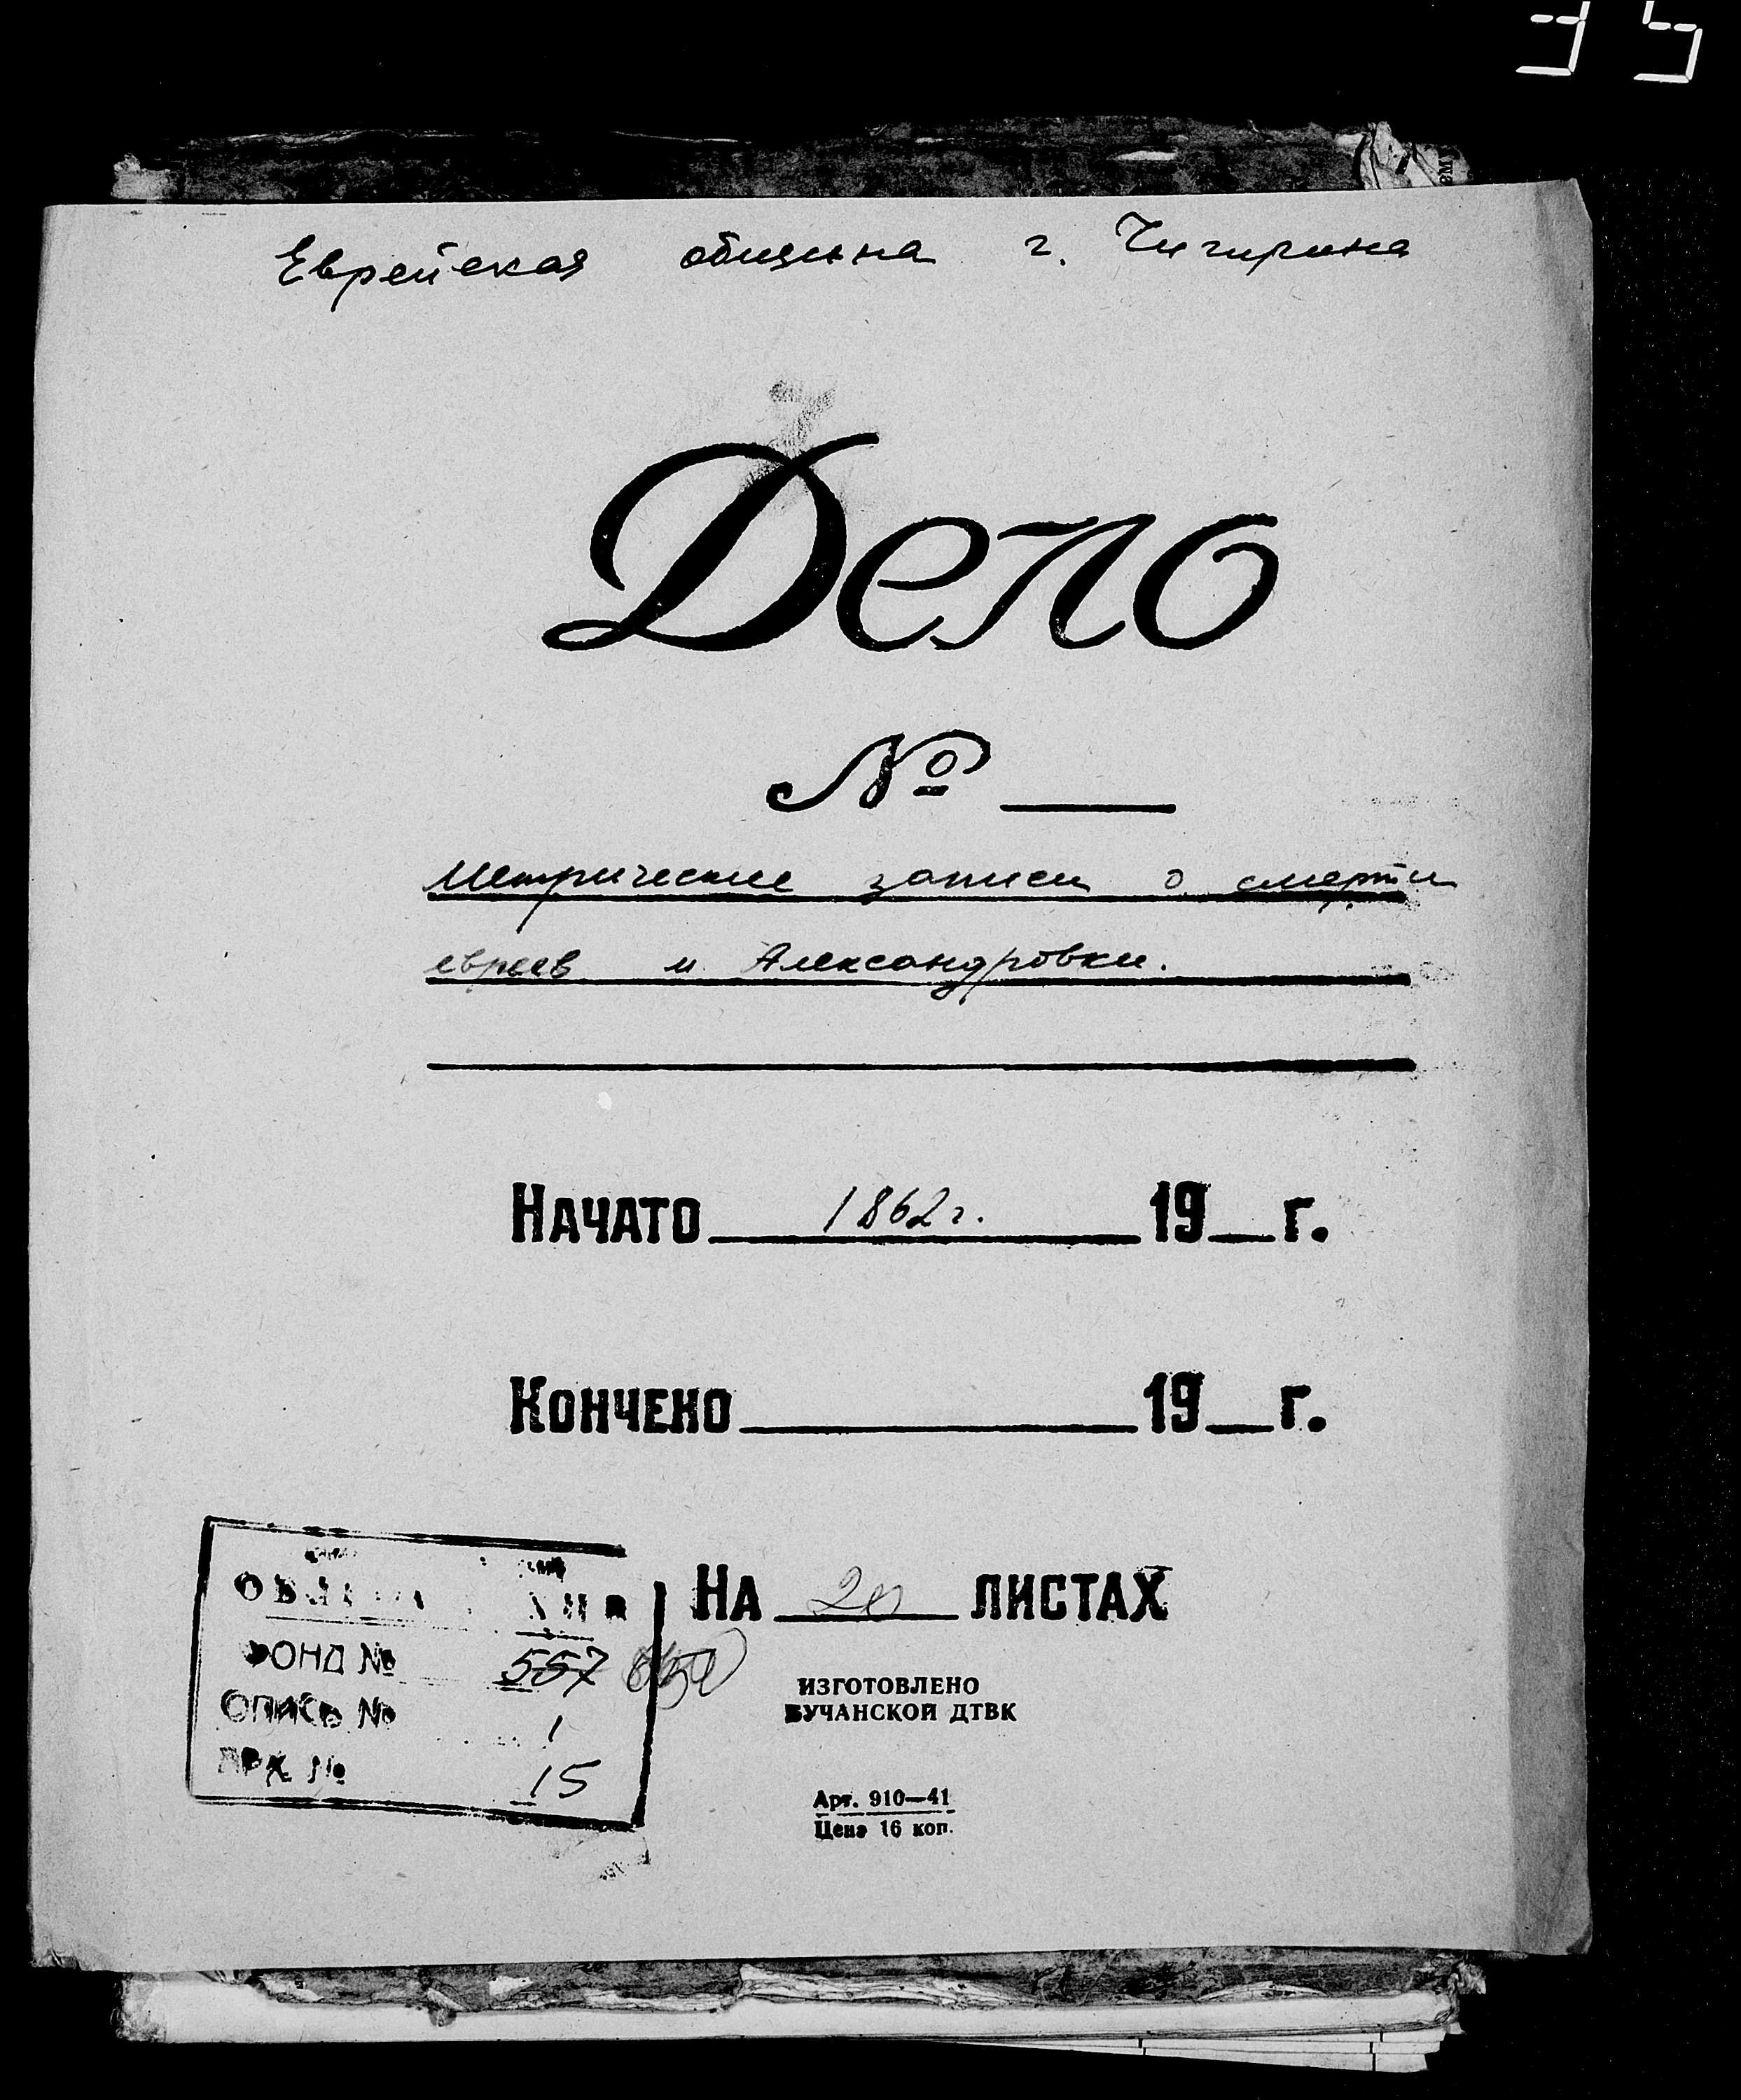 35
Еврейская община г. Чигирина
Дело
№
Метрические записи о смерти
евреев м. Александровки.
Начато 1862 г. 19 г.
Кончено 19 г.
На 20 листах
ФОНД № 557
ОПИСЬ № 1
№ 15
ИЗГОТОВЛЕНО
БУЧАНСКОЙ ДТВК
Арт. 910—41
Цена 16 коп.